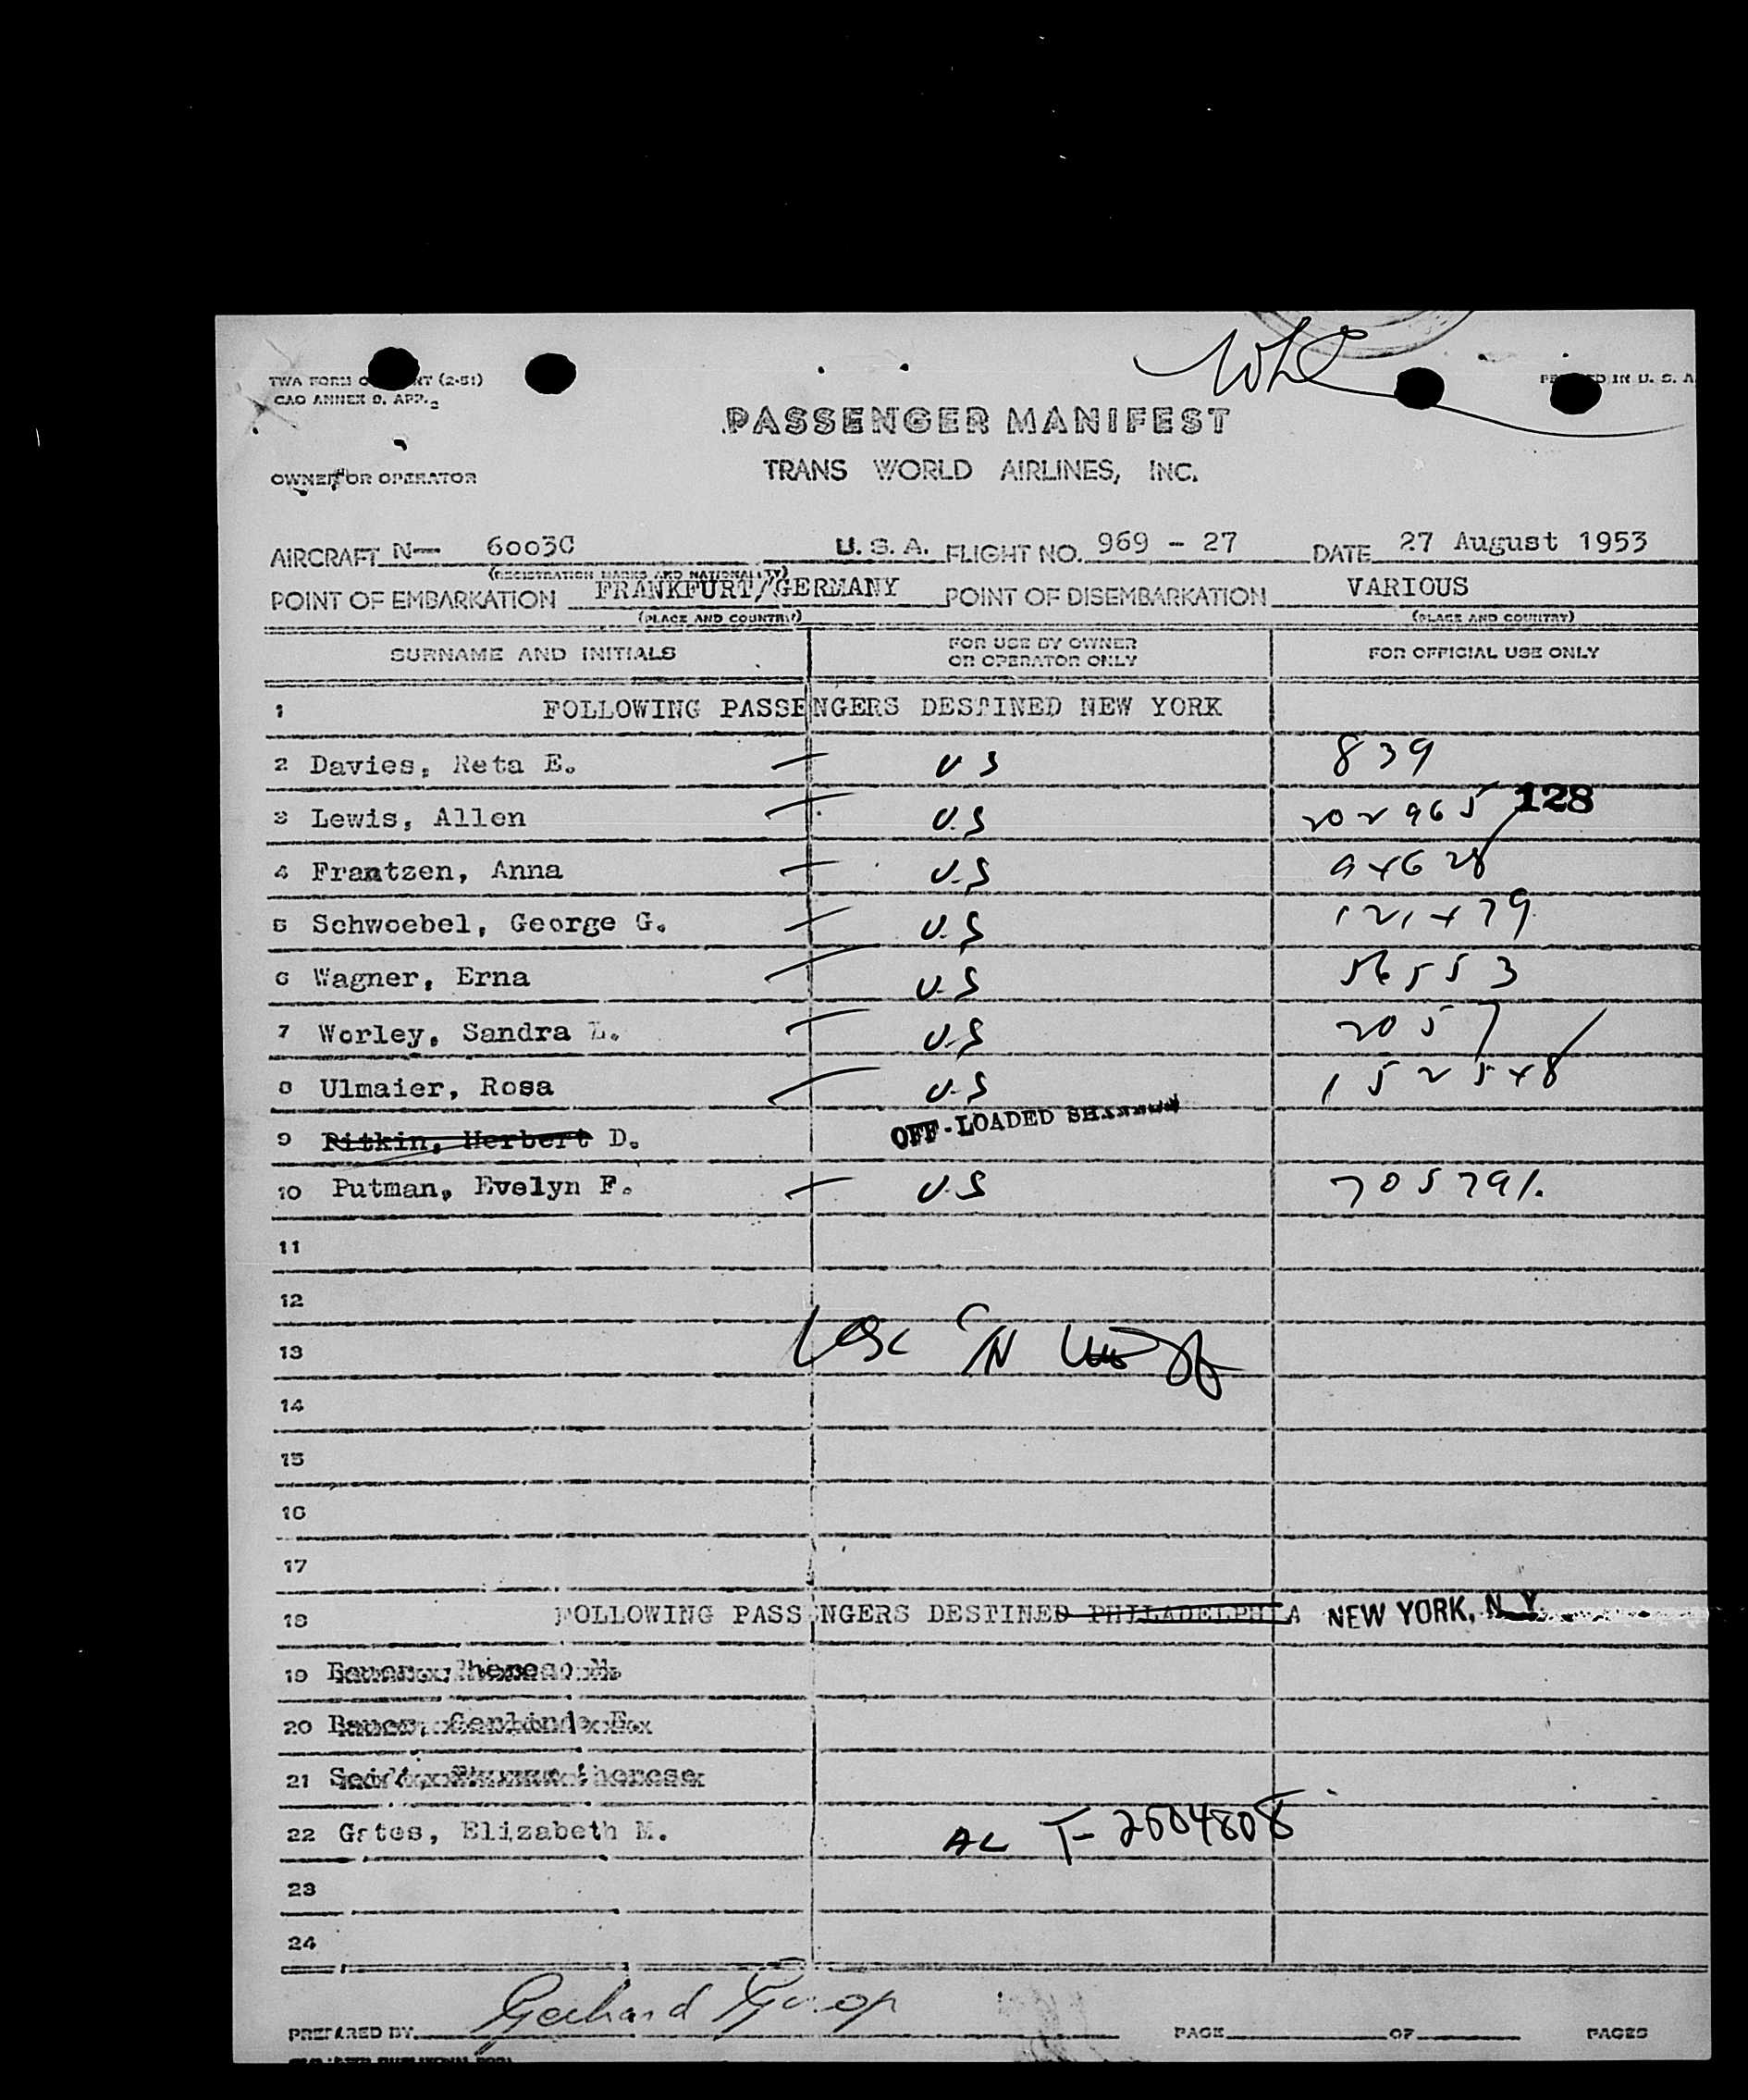 TWA FORM (2-51)
PRINTED IN U. S. A
CAO ANNEX 9. APP.
PASSENGER MANIFEST
OWNER OR OPERATOR
TRANS WORLD AIRLINES, INC.
AIRCRAFT N— 6003C U. S. A. FLIGHT NO. 969 - 27 DATE 27 August 1953
(REGISTRATION MARKS AND NATIONALITY)
POINT OF EMBARKATION FRANKFURT/GERMANY POINT OF DISEMBARKATION VARIOUS
(PLACE AND COUNTRY) (PLACE AND COUNTRY)
SURNAME AND INITIALS FOR USE BY OWNER OR OPERATOR ONLY FOR OFFICIAL USE ONLY
1 FOLLOWING PASSENGERS DESTINED NEW YORK
2 Davies, Reta E. US 839
3 Lewis, Allen U.S 202965 128
4 Frantzen, Anna U.S 94628
5 Schwoebel, George G. U.S 121479
6 Wagner, Erna U.S 56553
7 Worley, Sandra L. U.S 2057
8 Ulmaier, Rosa U.S 152548
9 Ritkin, Herbert D. OFF-LOADED SHANNON
10 Putman, Evelyn F. U.S 705791.
11
12
13
14
15
16
17
18 FOLLOWING PASSENGERS DESTINED PHILADELPHIA NEW YORK, N. Y.
19
20
21
22 Gates, Elizabeth M. AL T-2604808
23
24
PREPARED BY Gerhard PAGE OF PAGES